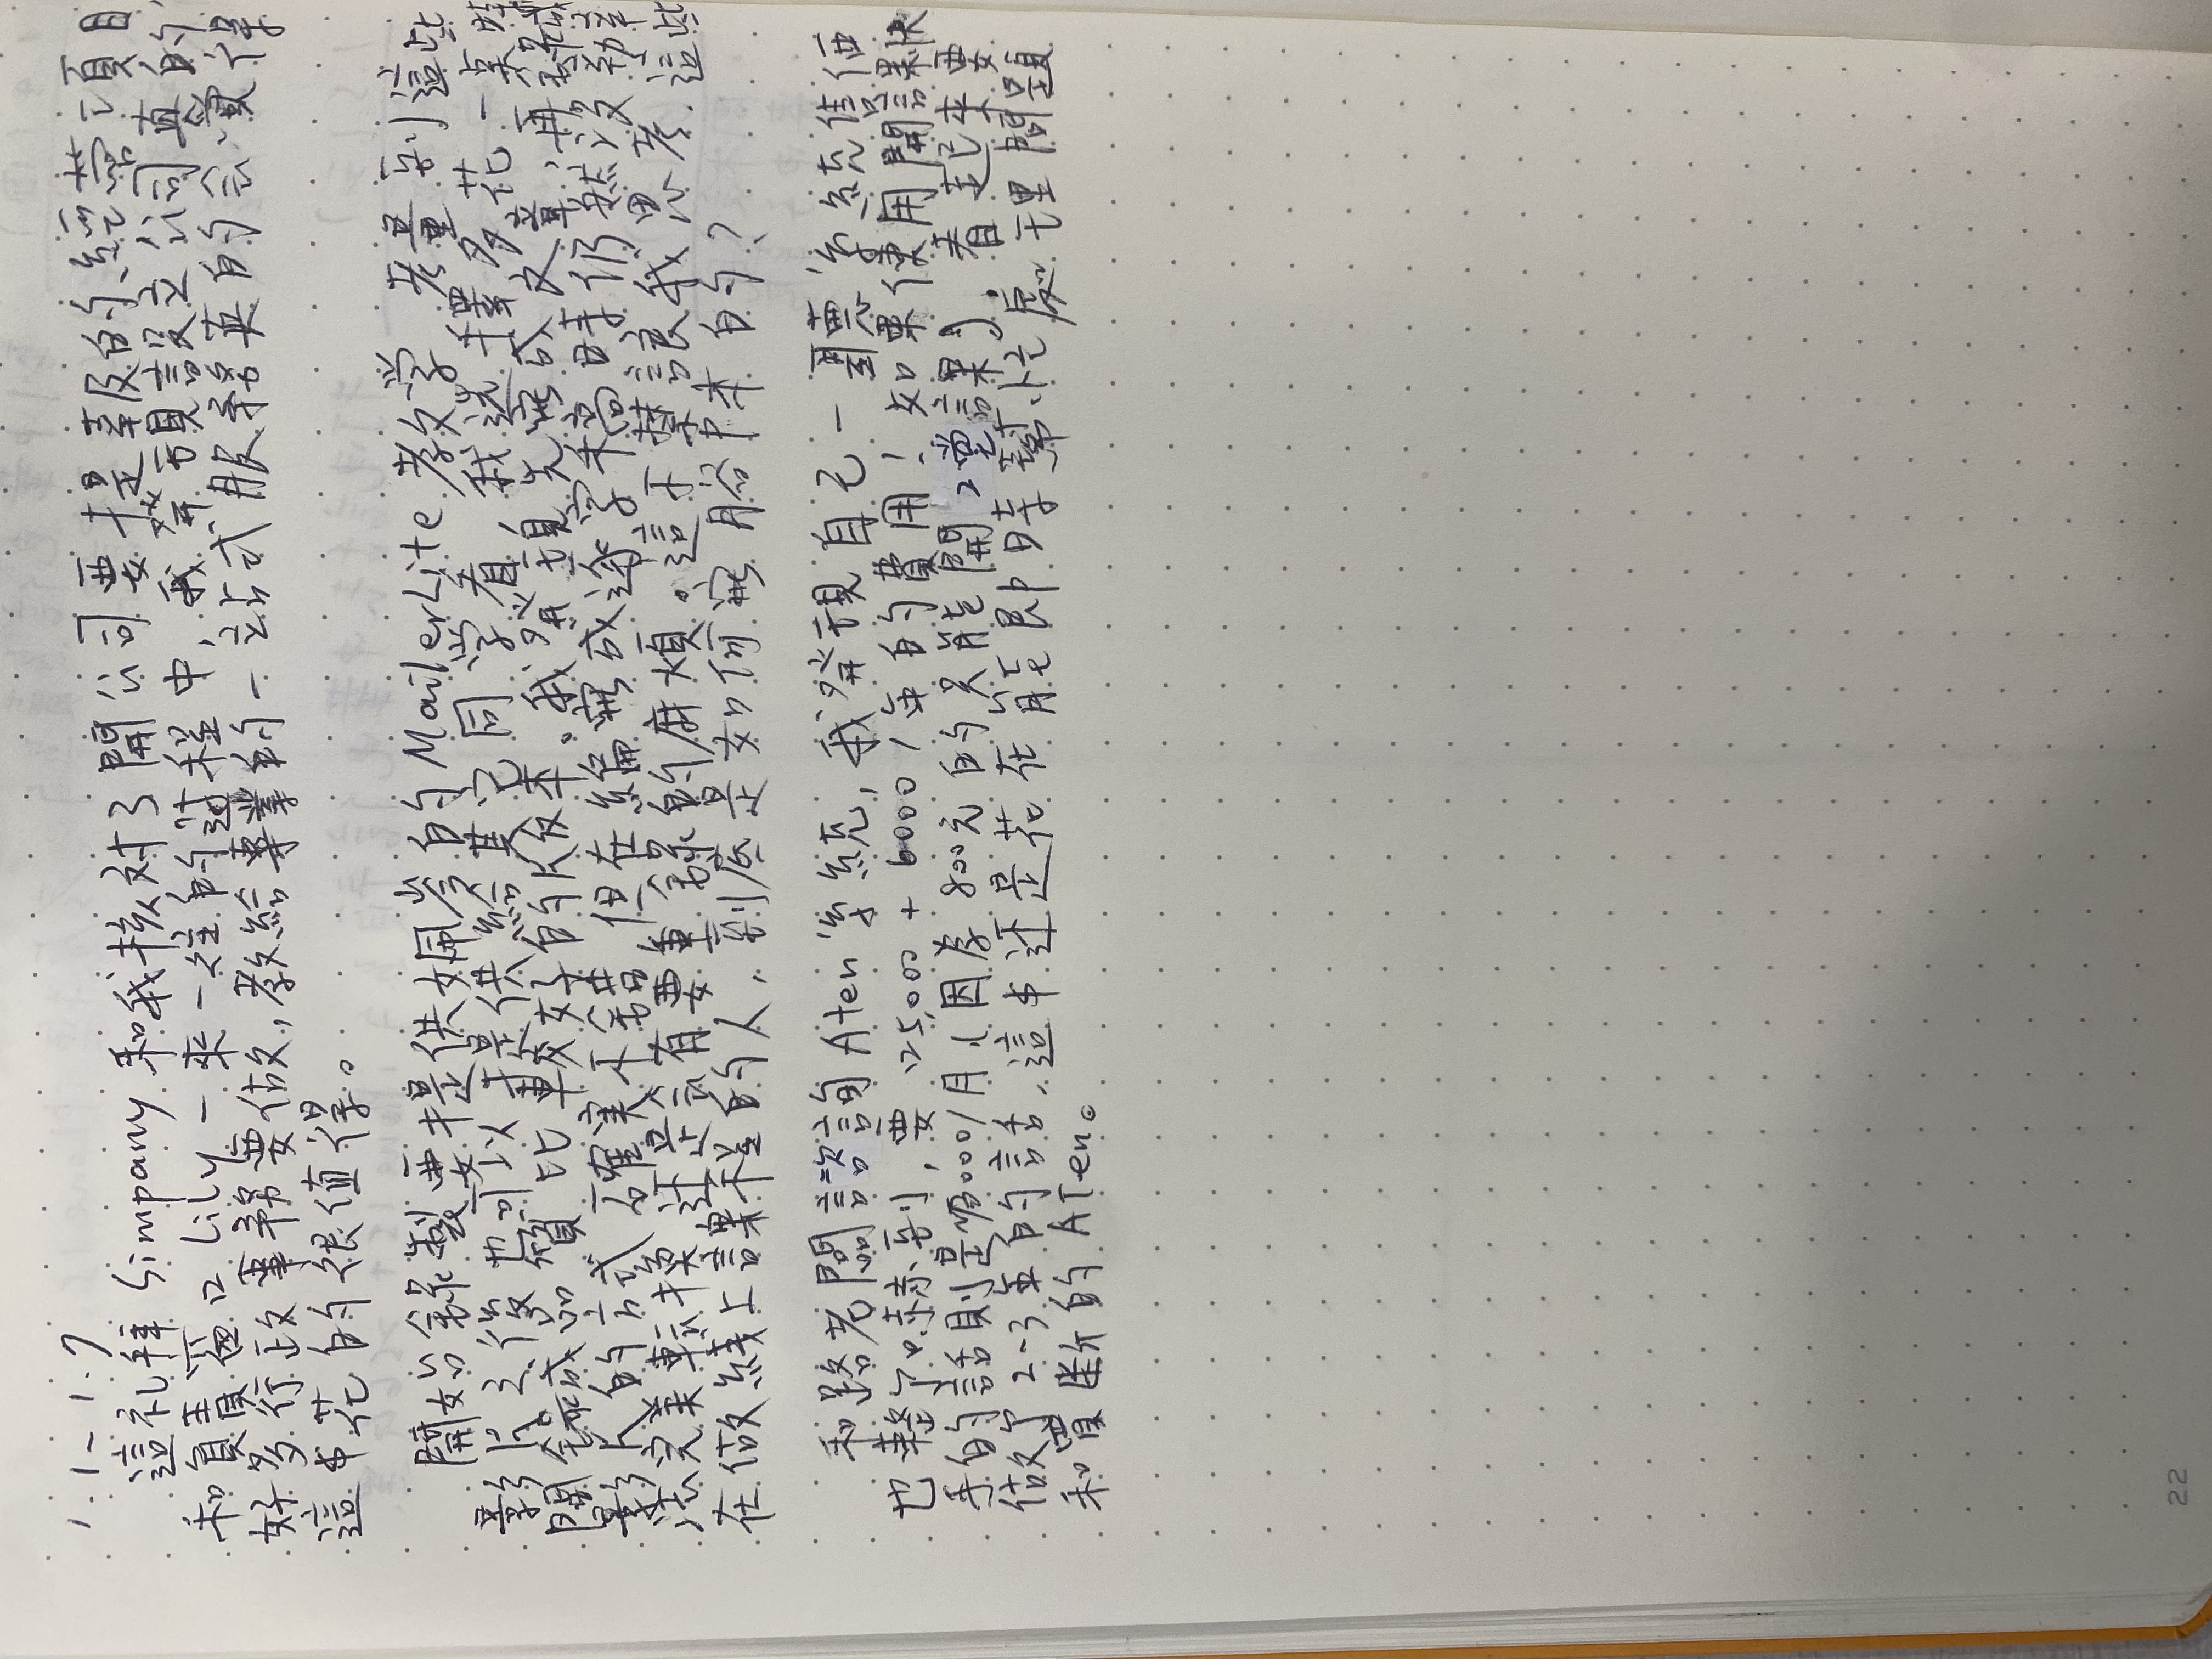 1.1~1.7
這礼拜 Simpany 和我核対了開公司要提報的経营項目,
和負責窗口 Lily 一來一往的过程中,我発現設立公司真的
好多行政事務要做,教給專業的一站式服務真的会覺得
這本花的很值得。
開始錄製要提供姵岑的 MailerLite 教学,考量到這些
影片之後也可以提供給其它同学看,我选擇多花一点時
間錄成品質比較好的版本。我発現先寫成文章,再錄成
影片的方式確実不錯,但在編寫成逐字稿時仍然沒辦
法完美転換,还是会有要重錄的麻煩。這不禁讓我思考,這些
在做綫上課程的人,到底是如何寫脚本的?
和路老闆諮詢 Aten 系統,我発現自己一聽系統售価
也整了嚇到,要 125,000 + 6000/年的費用!如果使用開課快
手的話則是 /月(因為800元的只能開2堂課),看起來要
做了2~3年的話,這本还是花在能即時幫忙處理問題
和買斷的 ATen。
22